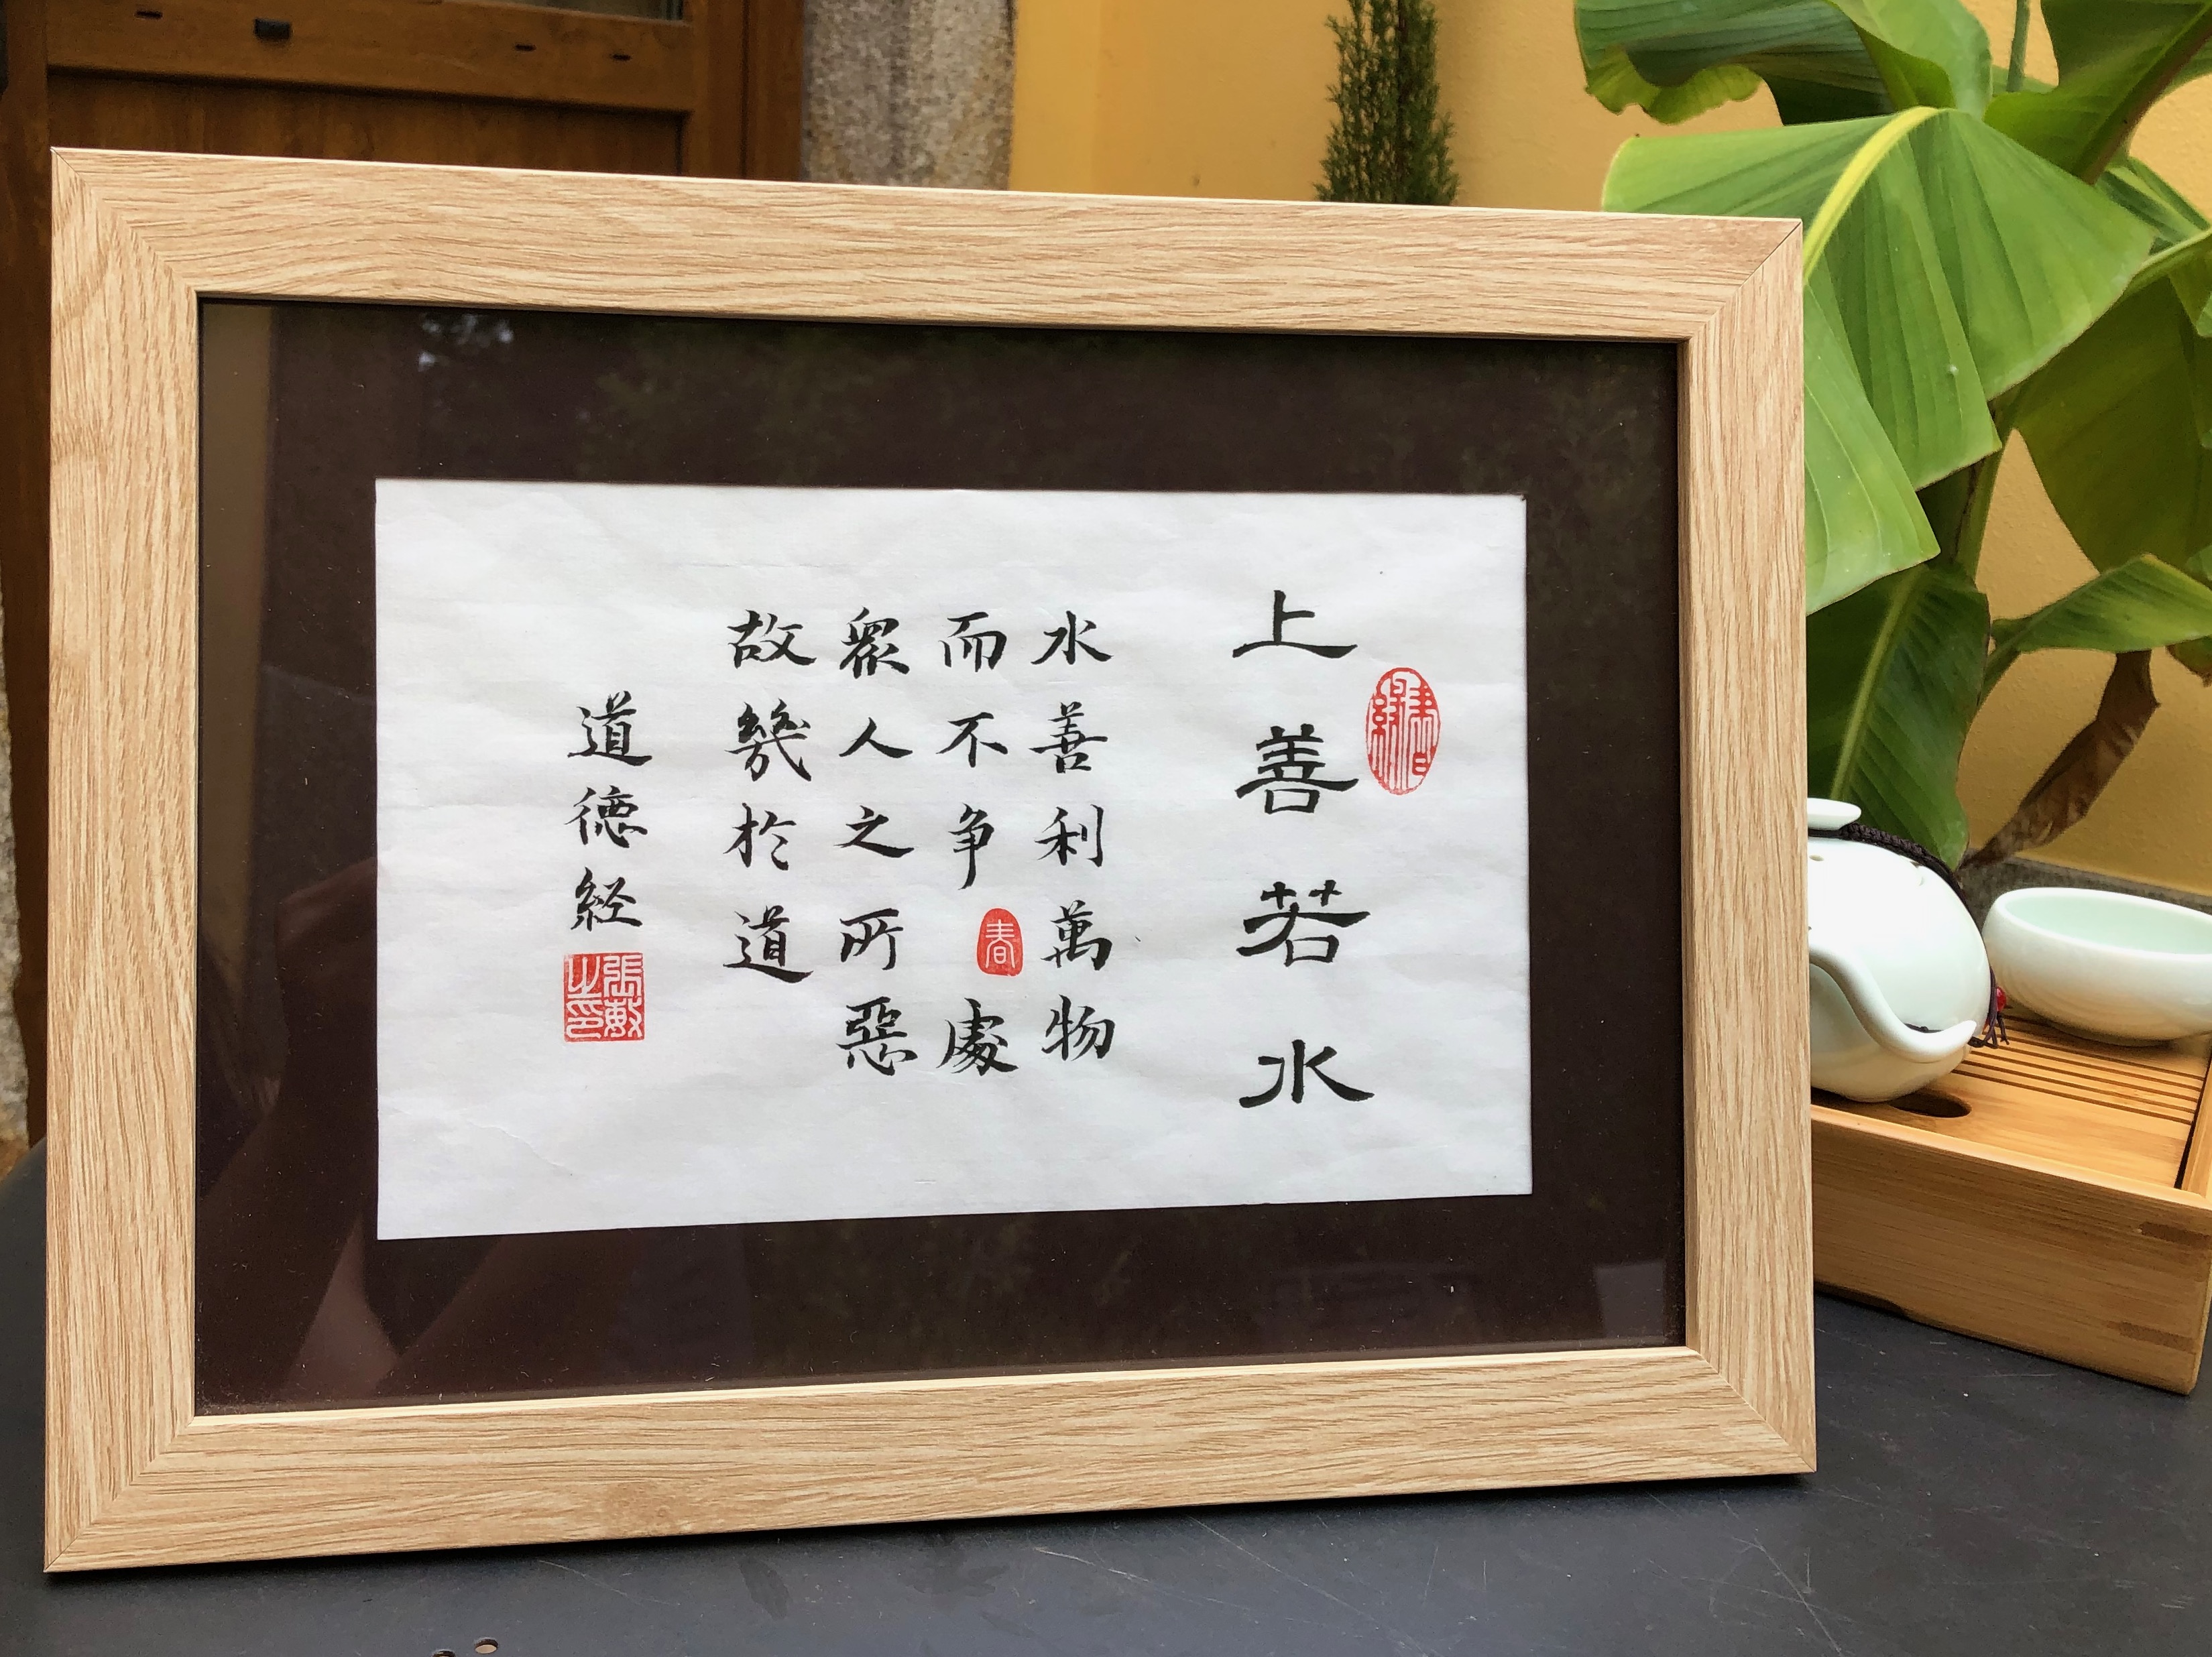 上善若水
水善利萬物
而不争處
眾人之所惡
故幾於道
道德経
春